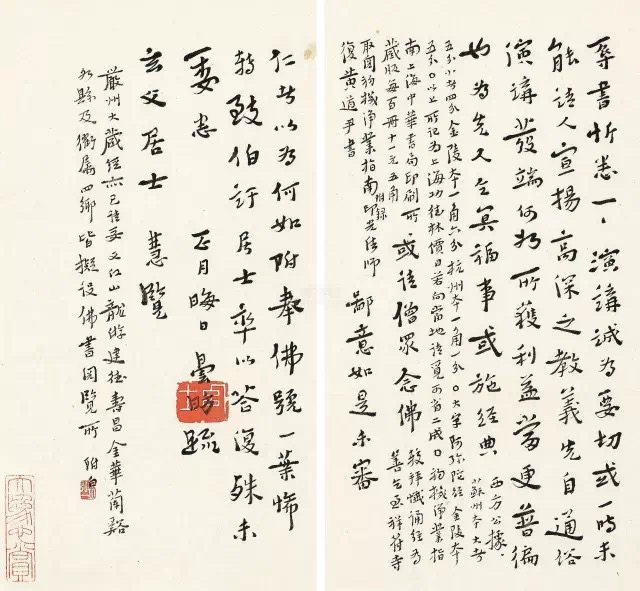 辱書忻悉一一演講誠為要切或一時未
能請人宣揚高深之教義先自通俗
演講發端何如所獲利益當更普徧
也為先人之冥福事或施經典
西方公據、
蘇州本大者
五分小者四分金陵本一角六分杭州本一角一分〇大字阿弥陀經金陵本
五分〇以上所記為上海功德林價目若向當地請覓可省二成〇初機淨業指
南上海中華書局印刷所
藏版每百冊十一元五角
或請僧眾念佛
較拜懺誦經為
善乞函祥符寺
取閱初機淨業指南附錄印光法師
復黃道尹書
鄙意如是未審
仁者以為何如附奉佛號一葉怖
轉致伯訏居士率以答復殊未
委悉 正月晦日曇昉疏
玄父居士 慧覽
嚴州大藏經亦已請妥又江山龍游建德壽昌金華蘭谿
縣及衢屬四鄉皆擬設佛書閱覽所 附白